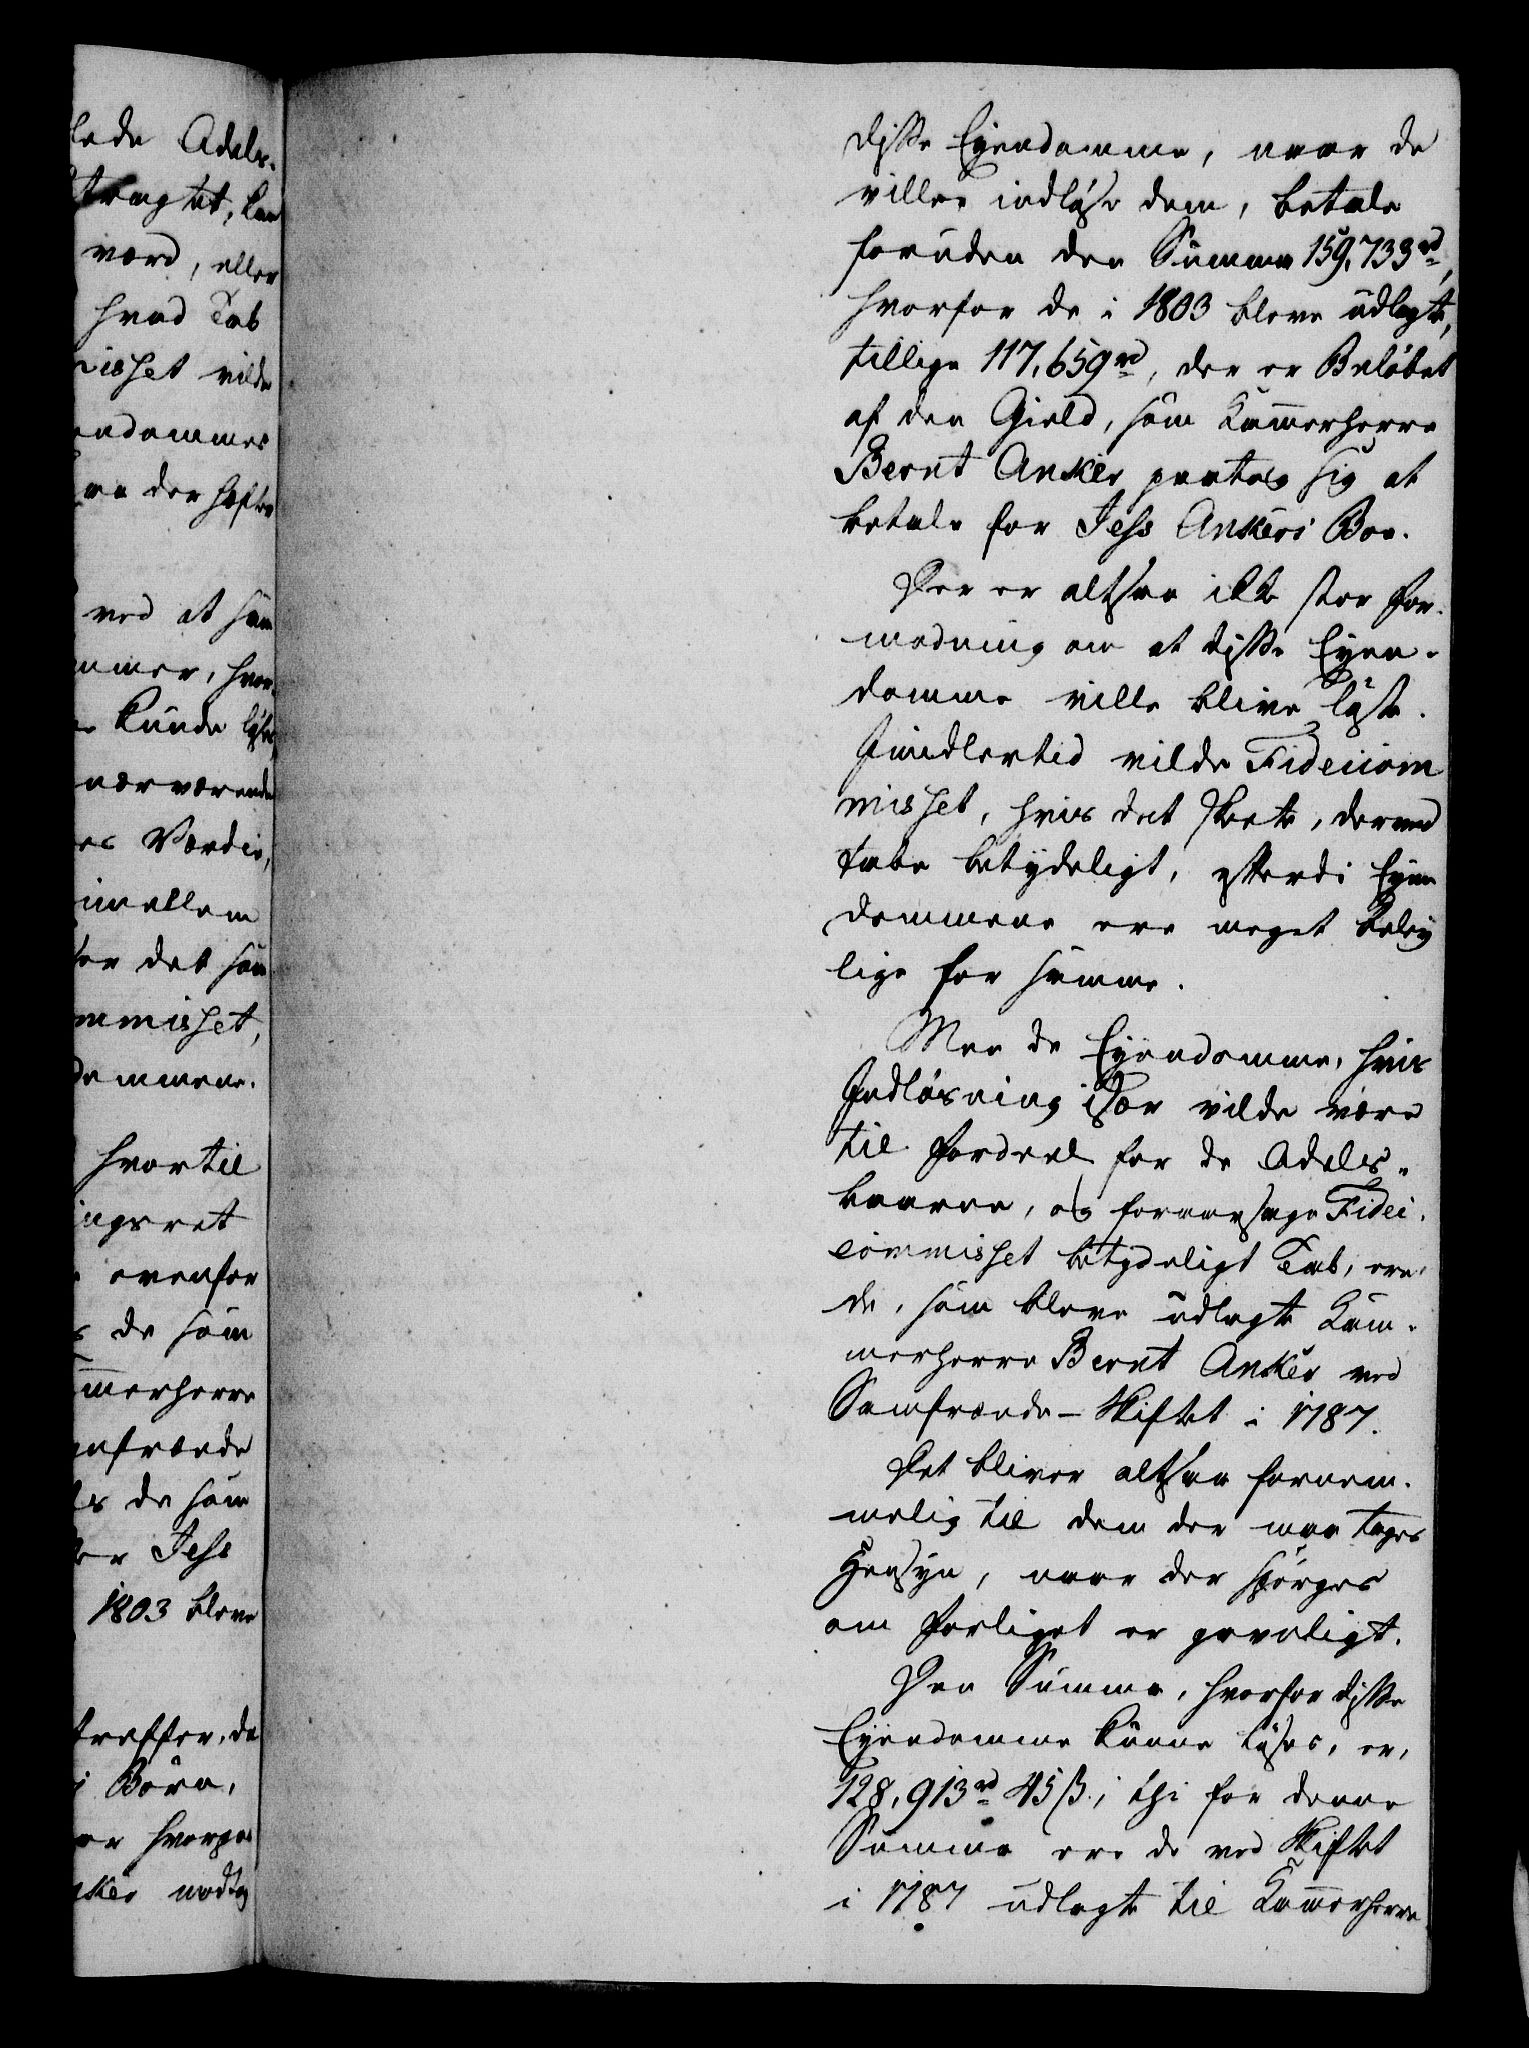 lede Adels-
tragtet, kan
værd, eller
hvad Tab
misset vilde
endommes
paa der hefter
ved at saa
mmer, hvor-
kunde løses,
nærværende
es Værdie,
imellem
for det som
mmisset,
dommene.
hvortil
ingsret
ovenfor
de som
mmerherre
mfrænde
s de som
er Jess
1803 bleve
treffer, da
i Børn,
er hvorpaa
nker modtog
disse Eyendomme, naar de
ville indløse dem, betale
foruden den Summa 159,733 rd,
hvorfor de i 1803 bleve udlagte,
tillige 117,659 rd, der er Beløbet
af den Gield, som Kammerherre
Bernt Anker paatog sig at
betale for Jess Ankers Boe.
Der er altsaa ikke stor For-
modning om at disse Eyen-
domme ville blive løste.
Imidlertid vilde Fideicom
misset, hvis det skeete, derved
tabe betydeligt, efterdi Eyen
dommene ere meget beley
lige for samme.
Men de Eyendomme, hvis
Indløsning især vilde være
til Fordeel for de Adels-
baarne, og foraarsage Fidei-
commisset betydeligt Tab, ere
de, som bleve udlagte Kam-
merherre Bernt Anker ved
Samfrænde-Skiftet i 1787.
Det bliver altsaa fornem-
melig til dem der maa tages
Hensyn, naar der spørges
om Forliget er gavnligt.
Den Summa, hvorfor disse
Eyendomme kunne løses, er,
128,913 rd 45 ß, thi for denne
Summa ere de ved Skiftet
i 1787 udlagte til Kammerherre